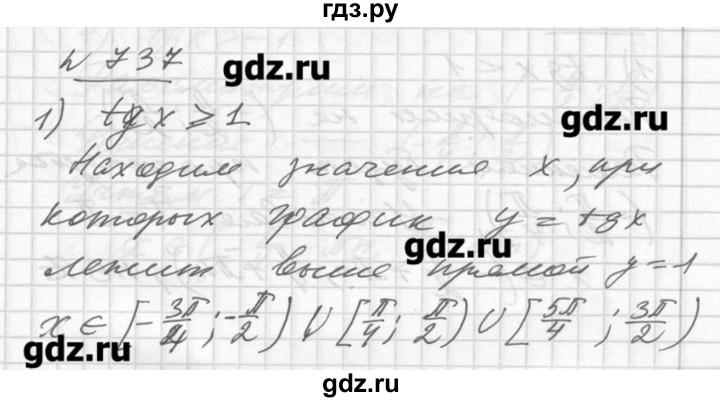 гдз.ру
№ 737
gdz.ru
1) tg x ⩾ 1
gdz.ru
Находим значения x, при
которых график y = tg x
gdz.ru
лежит выше прямой y = 1
x ∈ [-3π/4; -π/2) ∪ [π/4; π/2) ∪ [5π/4; 3π/2)
gdz.ru
gdz.ru